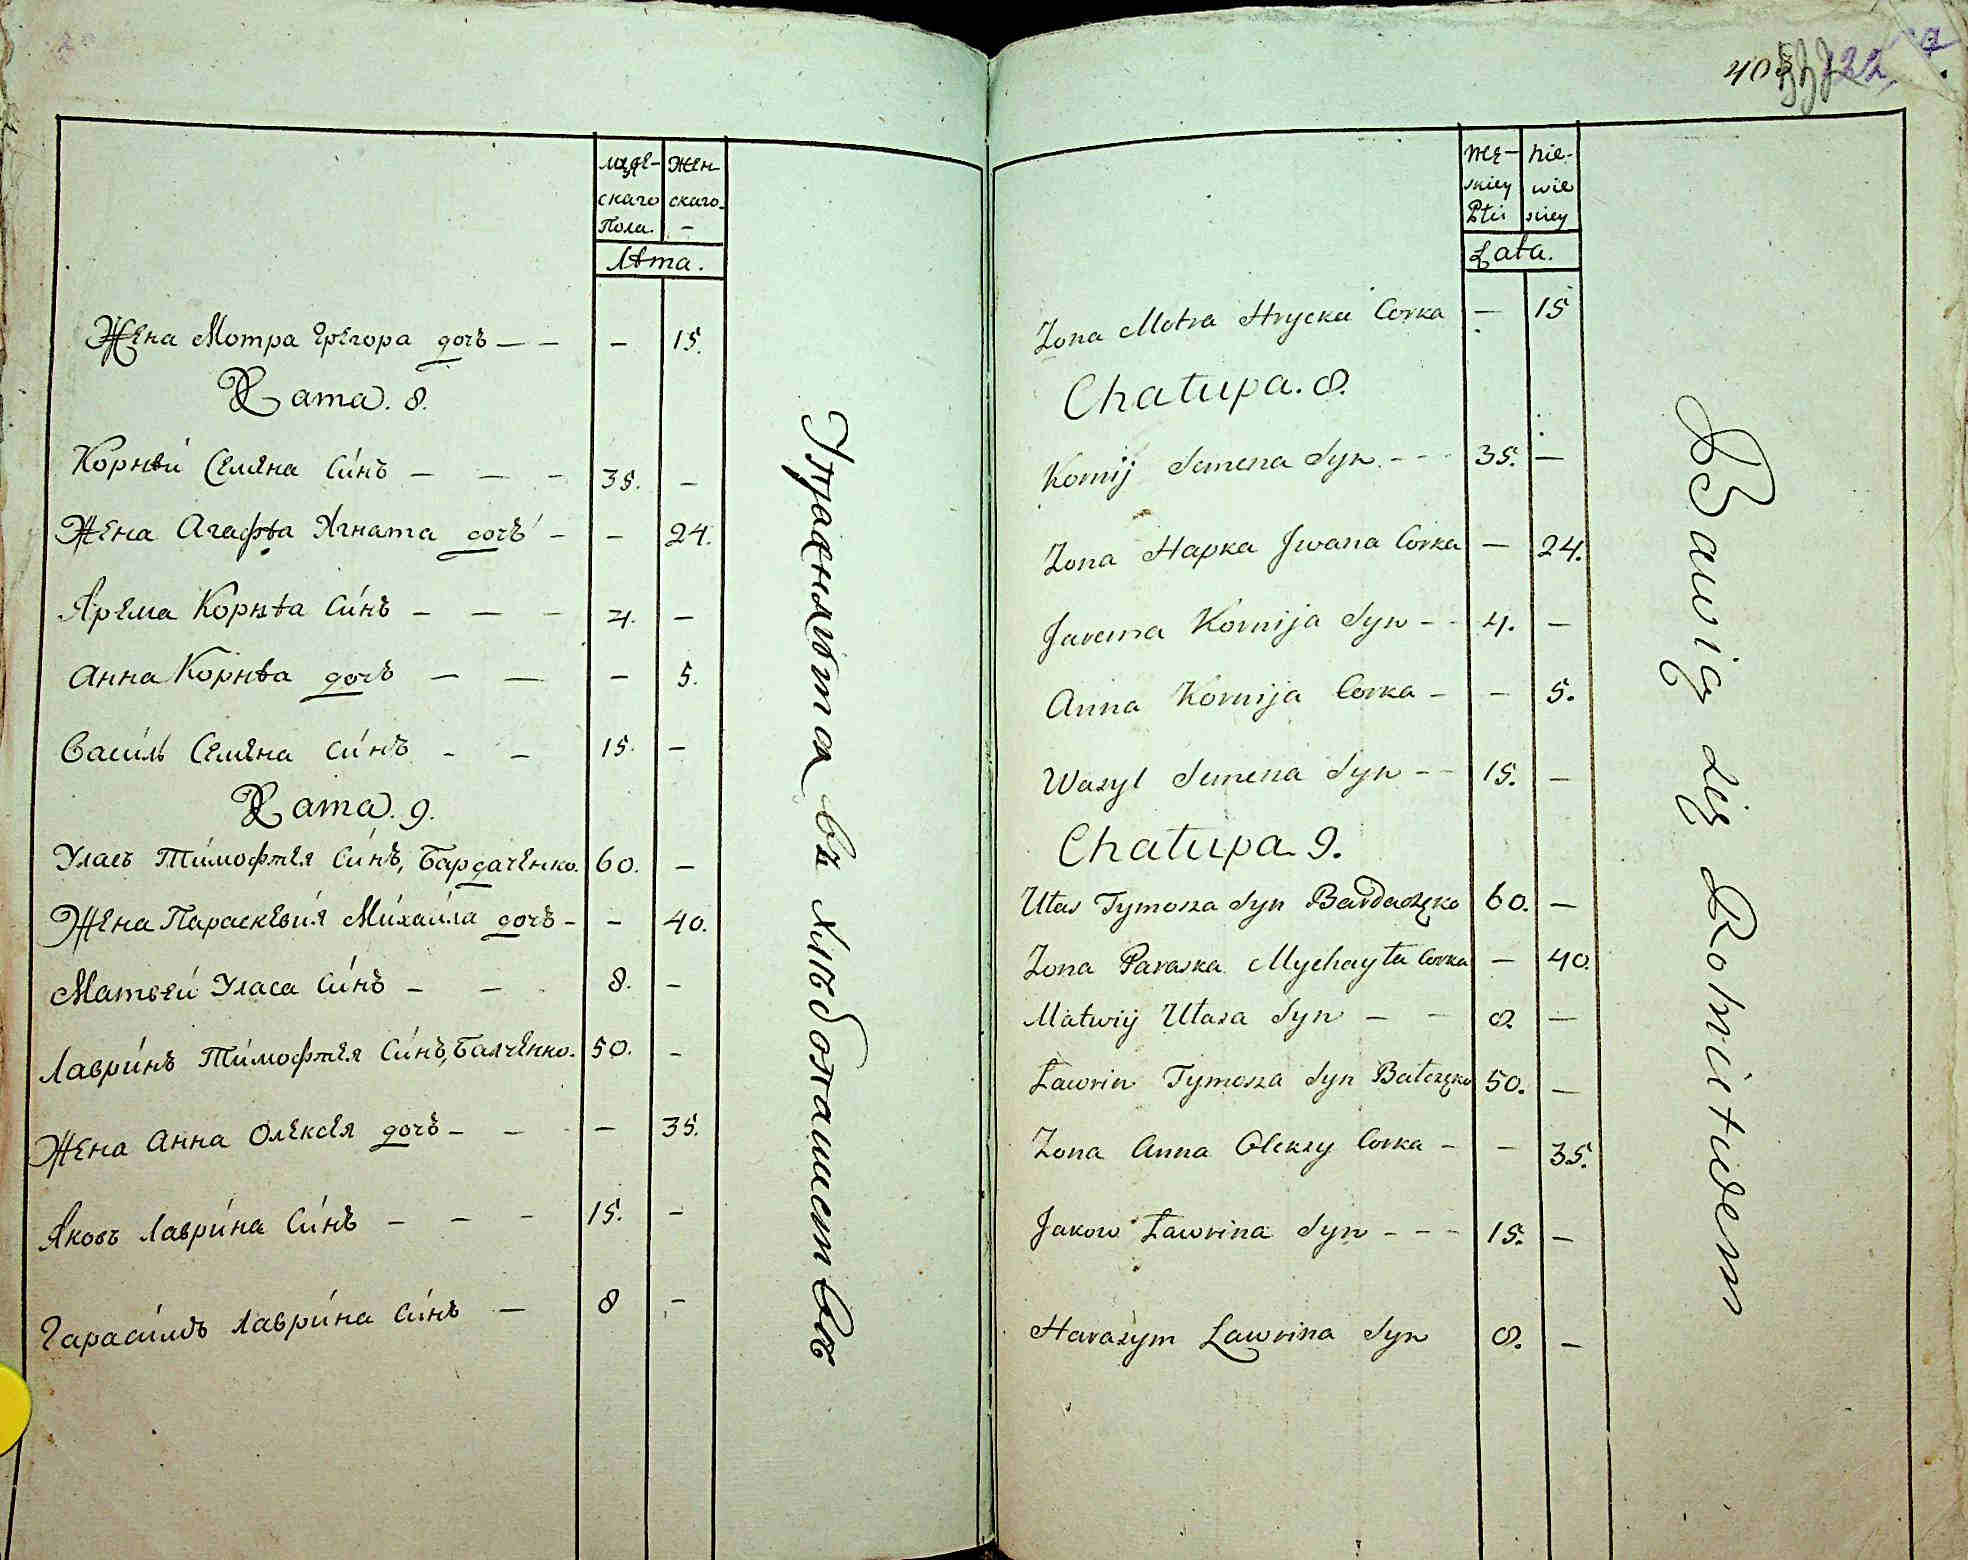 мꙋже- Жен-
скаго скаго
Пола. -
Лѣта.
Жена Мотра Грегора дочь — — — 15.
Хата. 8.
Корнѣй Семена Сынъ — — — 35. —
Жена Агафѣа Игната дочь — — 24.
Ярема Корнѣа Сынъ — — — 4. —
Анна Корнѣа дочь — — — 5.
Василь Семена Сынъ — — 15. —
Хата. 9.
Уласъ Тимофтея Сынъ, Бардаченко. 60. —
Жена Параскевия Михаила дочь — — 40.
Матвей Уласа Сынъ — — 8. —
Лавринъ Тимофтея Сынъ, Балченко. 50. —
Жена Анна Олексея дочь — — — 35.
Яковъ Лаврина Сынъ — — — 15. —
Гарасимъ Лаврина Сынъ — 8 —
Упражняются въ хлѣбопашествѣ
403 722
Mę- nie-
skiey wie
Płci skiey
Łata.
Zona Motra Hrycka Corka — 15
Chałupa. 8.
Kornij Semena Syn - - - 35. —
Zona Hapka Jwana Corka — 24.
Jarema Kornija Syn - - 4. —
Anna Kornija Corka - — 5.
Wasyl Semena Syn - - 15. —
Chałupa 9.
Ułas Tymosza Syn Bardaczęko 60. —
Zona Paraska Mychayła Corka — 40.
Matwij Ułasa Syn — — 8. —
Ławrin Tymosza Syn Bałczęko 50. —
Zona Anna Olexsy Corka — — 35.
Jakow Ławrina Syn - - - 15. —
Harasym Ławrina Syn 8. —
Bawią się Rolnictwem